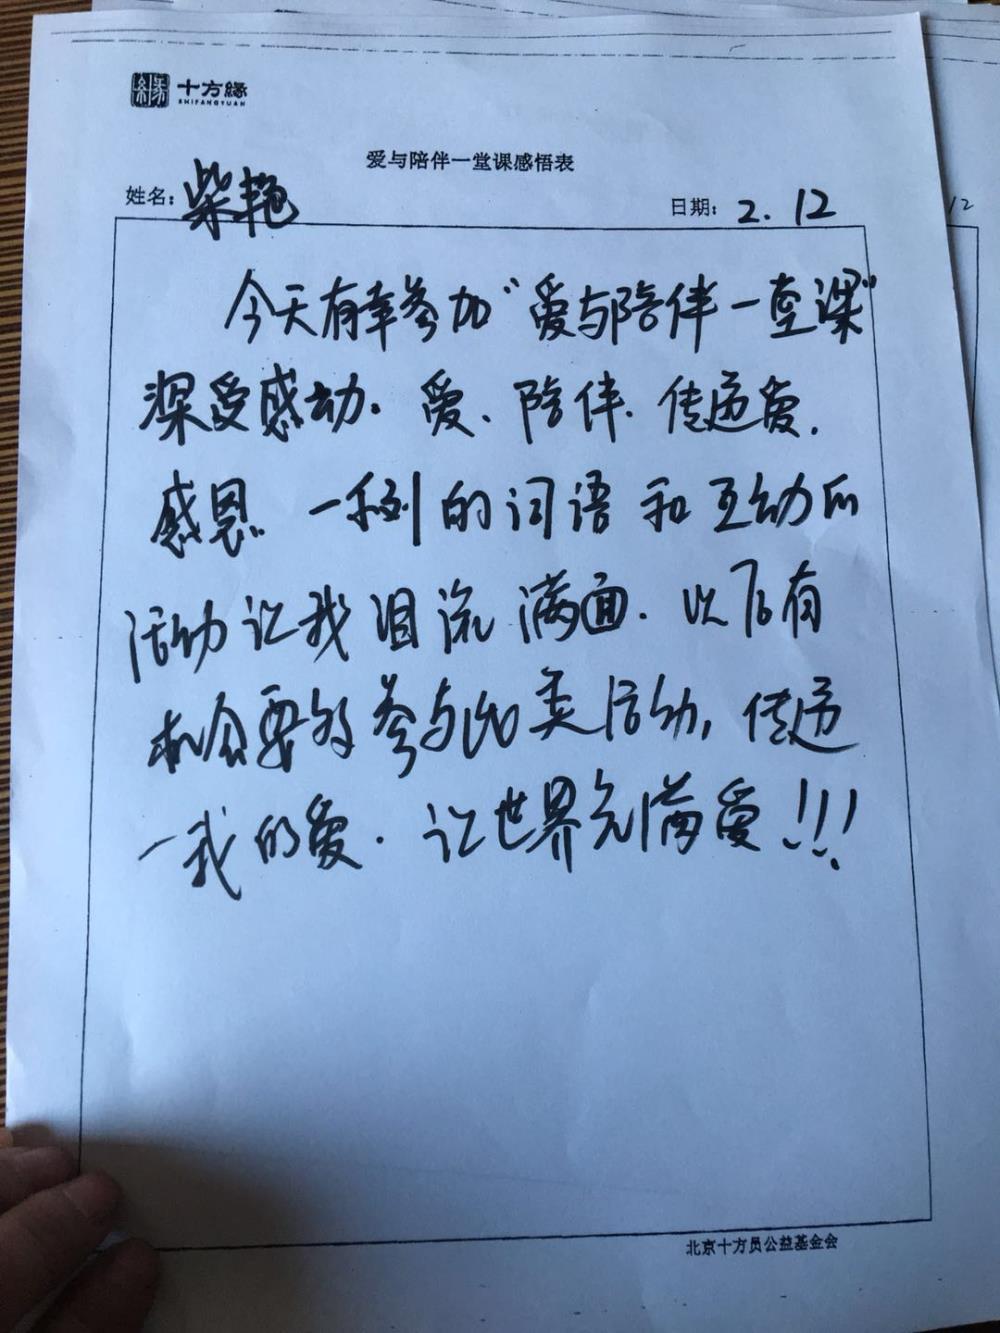 十方缘
SHIFANGYUAN
爱与陪伴一堂课感悟表
姓名：柴艳
日期：2.12
12
今天有幸参加“爱与陪伴一堂课”
深受感动。爱、陪伴、传递爱.
感恩 一系列的词语和互动的
活动让我泪流满面.以后有
机会要多参与此类活动,传递
一我的爱.让世界充满爱!!!
北京十方员公益基金会